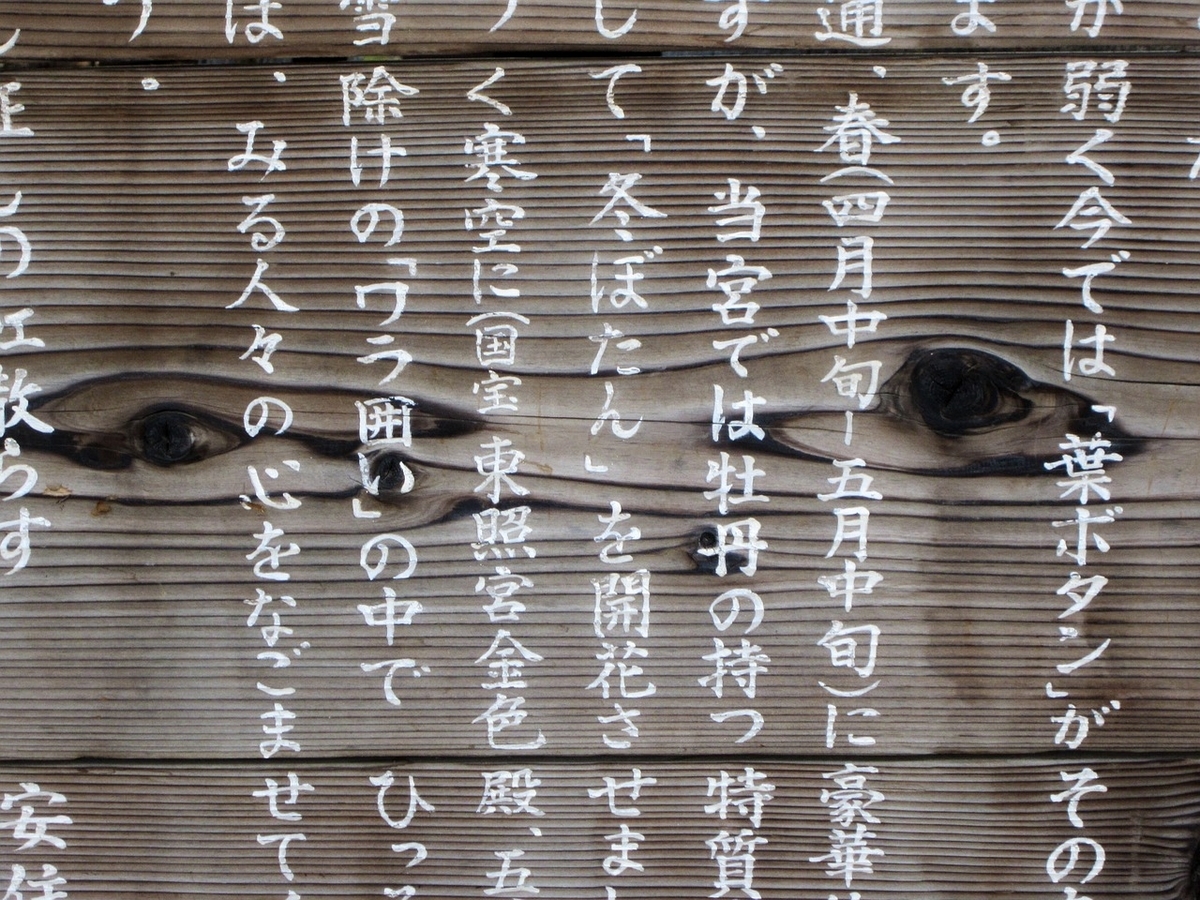 が弱く今では「葉ボタン」が その
ます。
通、春(四月中旬ー五月中旬)に 豪華
すが、当宮では牡丹の持つ 特質
して「冬ぼたん」を開花さ せまし
く寒空に(国宝 東照宮金色 殿、五
雪除けの「ワラ囲い」の中で ひっ
は、みる人々の心をなごま せて
う。
散らす 安住